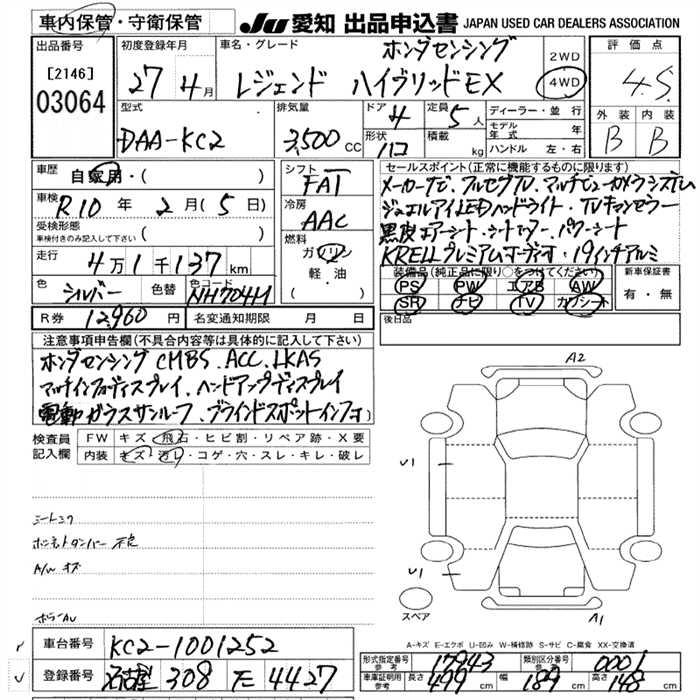 車内保管・守衛保管
JU 愛知 出品申込書 JAPAN USED CAR DEALERS ASSOCIATION
出品番号
[2146]
03064
初度登録年月
27年4月
車名・グレード
ホンダセンシング
レジェンド ハイブリッドEX
2WD
4WD
評価点
4.5
外装 内装
B B
型式
DAA-KC2
排気量
3,500 CC
ドア 4
定員 5人
形状 ハコ
積載 kg
ディーラー・並行
モデル年式 年
ハンドル 左・右
車歴
自家用・( )
車検 R10年2月(5日)
受検形態
車検付きのみ記入して下さい ( )
走行
4万1千137km
色 シルバー 色替 色コード NH704M
シフト
FAT
冷房
AAC
燃料
ガソリン
軽・油
( )
セールスポイント(正常に機能するものに限ります)
メーカーナビ、フルセグTV、マルチビューカメラシステム
ジュエルアイLEDヘッドライト・TVキャンセラー
黒皮エアーシート・シートヒーター・パワーシート
KRELLプレミアムオーディオ・19インチアルミ
装備品(純正品に限り○をつけてください)
PS PW エアB AW
SR ナビ TV カワシート
新車保証書
有・無
R券 12,960円 名変通知期限 月 日
後日品
注意事項申告欄(不具合内容等は具体的に記入して下さい)
ホンダセンシング CMBS、ACC、LKAS
マルチインフォディスプレイ、ヘッドアップディスプレイ
電動ガラスサンルーフ、ブラインドスポットインフォ
検査員記入欄
FW キズ・飛石・ヒビ割・リペア跡・X要
内装 キズ・汚レ・コゲ・穴・スレ・キレ・破レ
シートスク
ボンネットダンパー 不良
A/W キズ
ホラーAU
A2
U1
U1
A1
スペア
A-キズ E-エクボ U-凹み W-補修跡 S-サビ C-腐食 XX-交換済
車台番号 KC2-1001252
登録番号 名古屋 308 モ 4427
形式指定番号 参考 17943 類別区分番号 参考 0001
車庫証明用 参考 長さ 499cm 幅 189cm 高さ 148cm